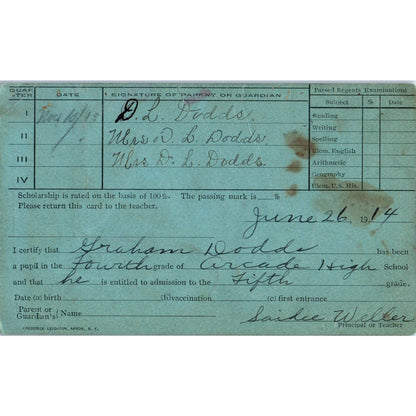 QUARTER DATE SIGNATURE OF PARENT OR GUARDIAN Passed Regents Examinations
Subject % Date
I Nov 10/13 D. L. Dodds. Reading
Writing
II Mrs. D. L. Dodds. Spelling
Elem. English
III Mrs. D. L. Dodds Arithmetic
Geography
IV Elem. U.S. His.
Scholarship is rated on the basis of 100%. The passing mark is %
Please return this card to the teacher.
June 26, 1914
I certify that Graham Dodds has been
a pupil in the Fourth grade of Arcade High School
and that he is entitled to admission to the Fifth grade.
Date (a) birth (b) vaccination (c) first entrance
Parent or Guardian's Name Saidee Weller
Principal or Teacher
FREDERICK LEIGHTON, AKRON, N. Y.